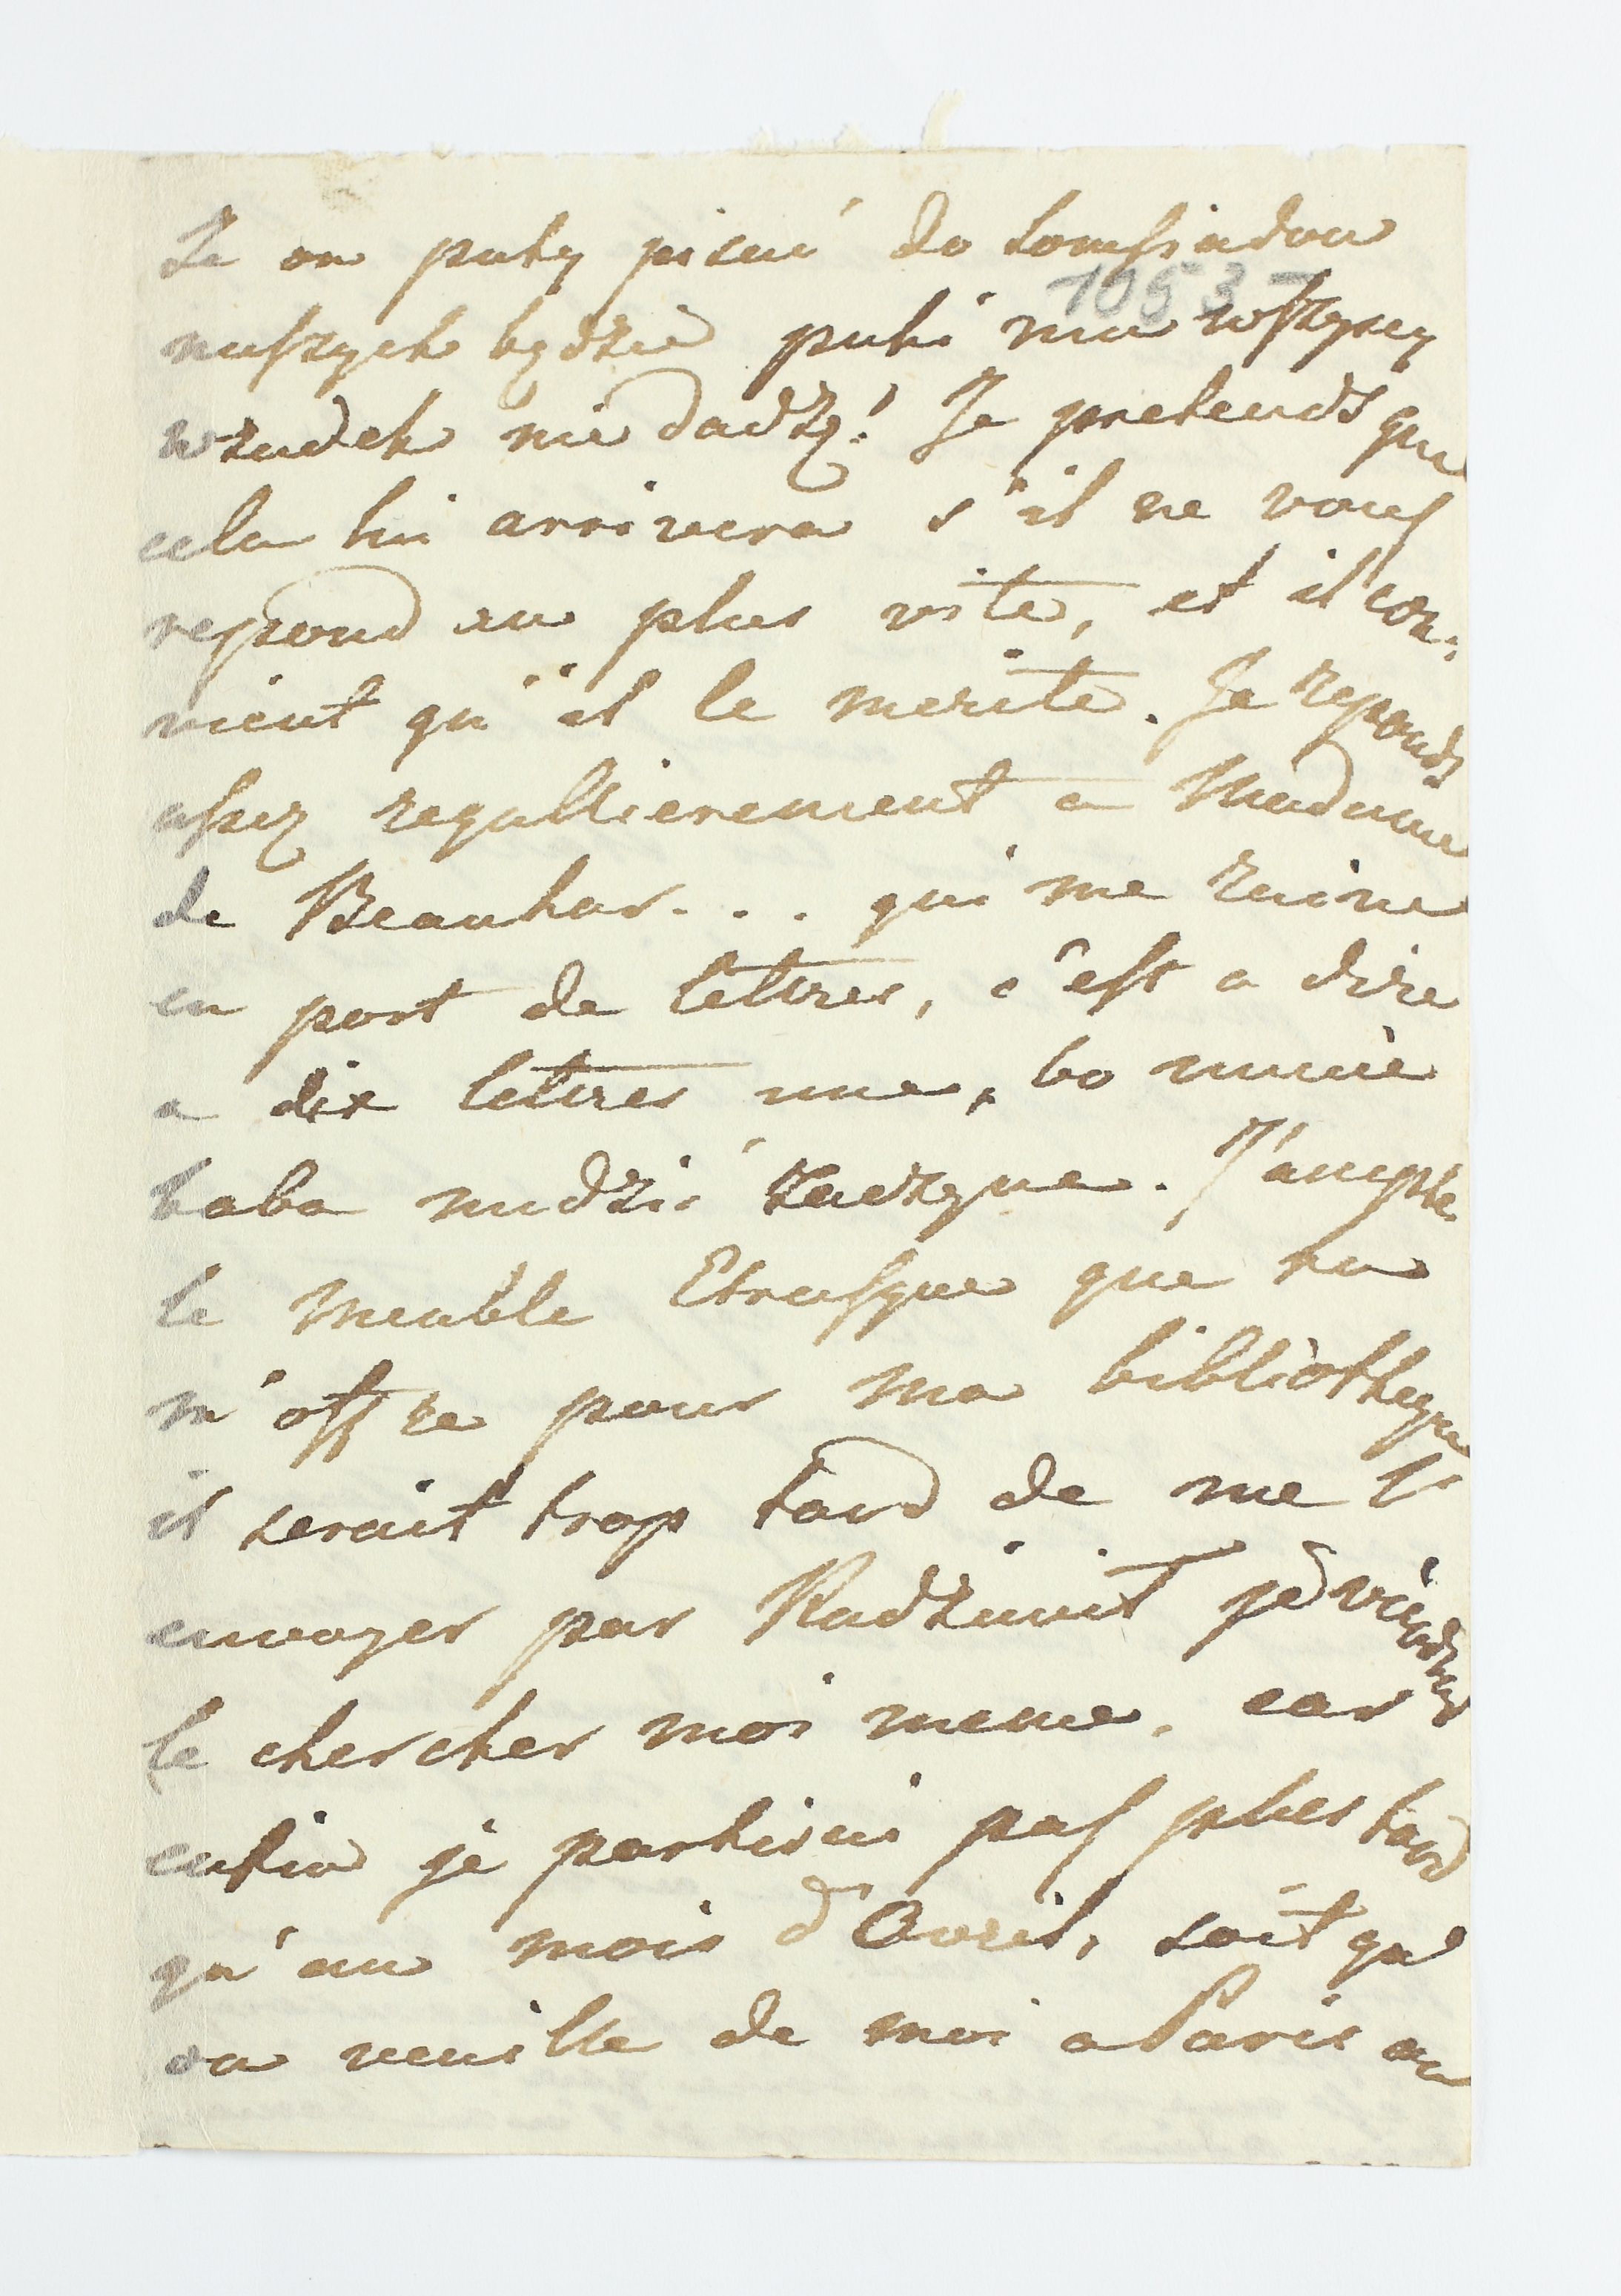 Ze on puty pisać do Somsiadow
10 5 3
naszych będzie puki mu wszyscy
w zadek nie dadzą! Je pretends que
cela lui arrivera s'il ne vous
repond au plus vite, et il con:
vient qu'il le merite. Je reponds
assez regullierement a Madame
de Beauhar... qui me ruine
en port de lettres, c'est a dire
a dix lettres une, bo mnie
baba nudzić zaczyna. J'accepte
le meuble Etrusque que tu
m'offre pour ma bibliotheque
il serait trop tard de me l'
envoyer par Radziwił je viendrai
le chercher moi meme, car
enfin je partirai pas plus tard
qu'au mois d'Avril, soit qu'
on veuille de moi a Paris ou